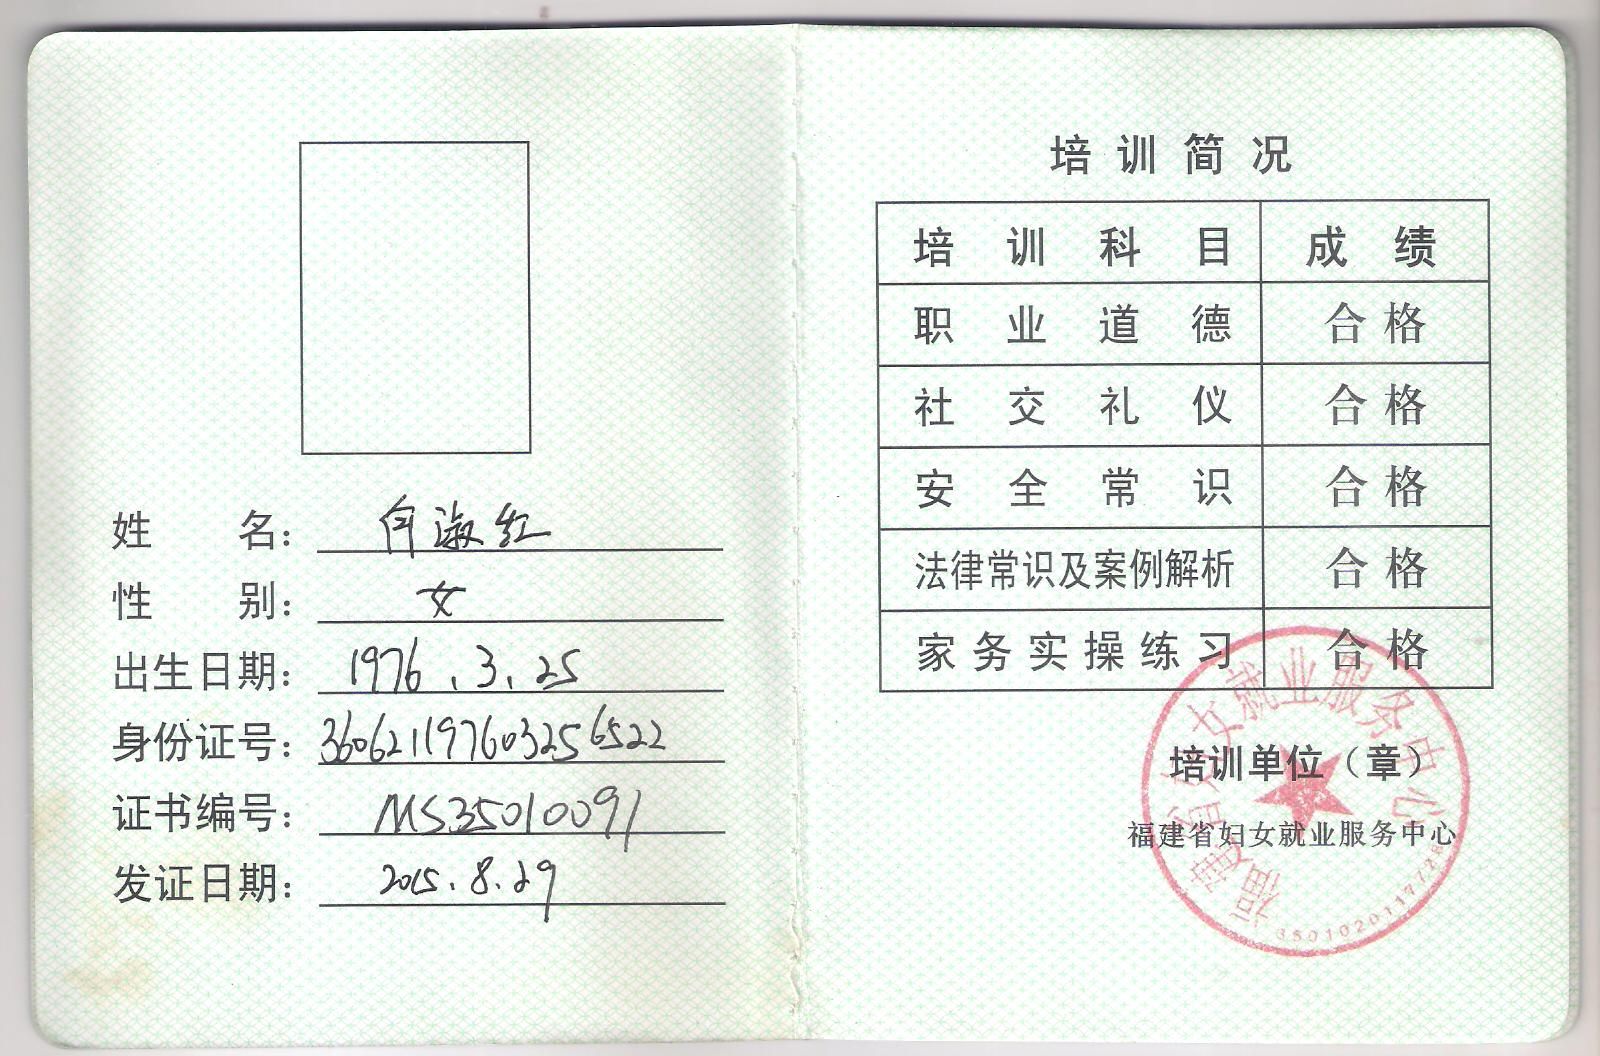 姓名：白淑红
性别：女
出生日期：1976.3.25
身份证号：360621197603256522
证书编号：MS35010091
发证日期：2015.8.29
培训简况
培训科目 成绩
职业道德 合格
社交礼仪 合格
安全常识 合格
法律常识及案例解析 合格
家务实操练习 合格
培训单位（章）
福建省妇女就业服务中心
福建省妇女就业服务中心
3501020117728